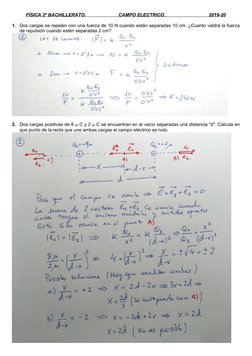 FÍSICA 2º BACHILLERATO. CAMPO ELECTRICO. 2019-20
1. Dos cargas se repelen con una fuerza de 10 N cuando están separadas 10 cm. ¿Cuánto valdrá la fuerza
de repulsión cuando estén separadas 2 cm?
① Ley de Coulomb: |F| = K Q₁·Q₂/r²
a 10cm → r=0'1m → 10 = K Q₁·Q₂/0'1²
a 2cm → r=0'02m → F = K Q₁·Q₂/0'02²
dividiendo
10/F = (K Q₁Q₂/0'1²)/(K Q₁Q₂/0'02²) ⇒ 10/F = 0'02²/0'1² ⇒ F=250N
2. Dos cargas positivas de 8 μ C y 2 μ C se encuentran en el vacío separadas una distancia "d". Calcula en
que punto de la recta que une ambas cargas el campo eléctrico es nulo.
②
x d-x
d
Para que el campo se anule ⇒ E₁+E₂=0
La suma de 2 vectores E₁+E₂ se anula cuando
ambos tengan el mismo módulo y sentido opuesto.
Esto sólo ocurre en el punto A)
|E₁|=|E₂| ⇒ K Q₁/x² = K Q₂/(d-x)² ⇒ Q₁/Q₂ = x²/(d-x)²
8μ/2μ = (x/(d-x))² ⇒ 4 = (x/(d-x))² ⇒ x/(d-x) = ±√4 = ±2
Posibles soluciones (Hay que analizar ambas)
a) x/(d-x) = +2 ⇒ x = 2d-2x ⇒ 3x=2d ⇒
x = 2d/3 (se corresponde con A)
b) x/(d-x) = -2 ⇒ x = -2d+2x ⇒
x = 2d (No es posible)